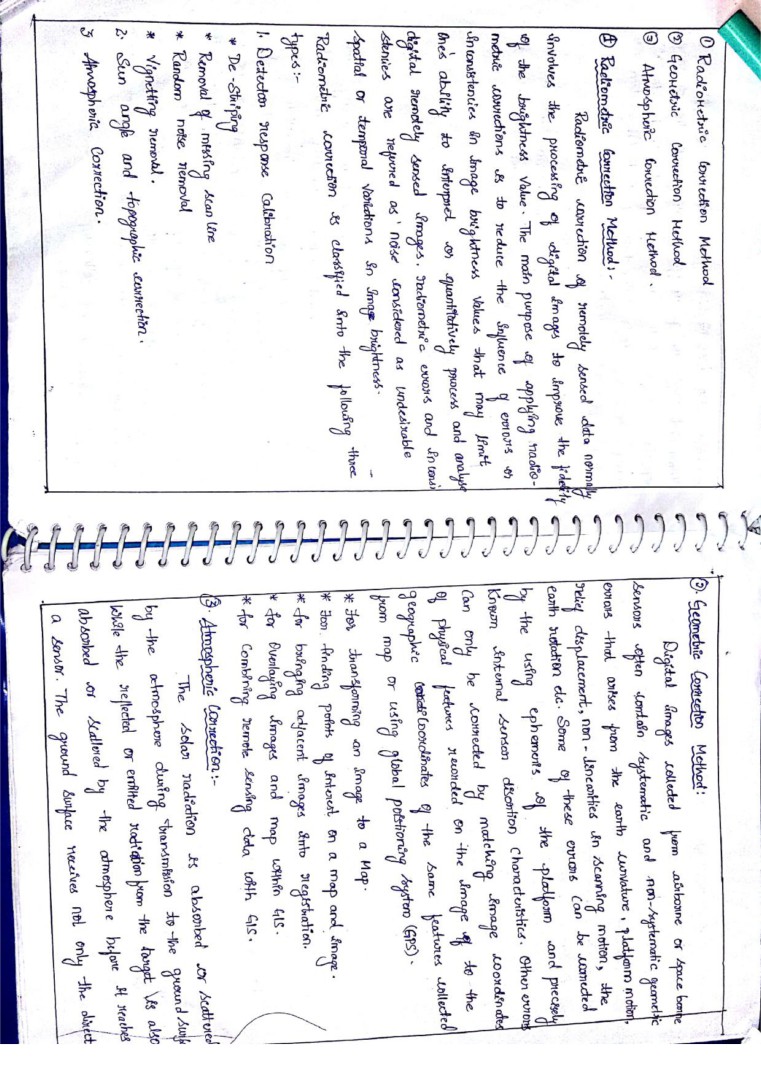 ① Radiometric Correction Method
② Geometric Correction Method
③ Atmospheric Correction Method.
① Radiometric Correction Method:-
Radiometric correction of remotely sensed data normally
involves the processing of digital images to improve the fidelity
of the brightness value. The main purpose of applying radio-
metric corrections is to reduce the influence of errors or
inconsistencies in image brightness values that may limit
one's ability to interpret or quantitatively process and analyse
digital remotely sensed images. radiometric errors and inconsi
stenies are reguired as 'noise considered as undesirable
spatial or temporal variations in image brightness.
Radiometric correction is classified into the following three
types:-
1. Detector response Calibration
* De-Striping
* Removal of missing scan line
* Random noise removal
* Vignetting removal.
2. Sun angle and topographic correction.
3. Atmospheric Correction.
②. Geometric Correction Method:
Digital images collected from airborne or space borne
sensors often contain systematic and non-systematic geometric
errors that arises from the earth curvature, platform motion,
relief displacement, non-linearities in scanning motion, the
earth rotation etc. Some of these errors can be corrected
by the using ephemeris of the platform and precisely
known internal sensor distortion characteristics. Other errors
can only be corrected by matching image coordinates
of physical features recorded on the image of to the
geographic coordinates of the same features collected
from map or using global positioning system (GPS).
* For transforming an image to a Map.
* For finding points of interest on a map and image.
* for bringing adjacent images into registration.
* for Overlaying images and map within GIS.
* for Combining remote sensing data with GIS.
③. Atmospheric Correction:-
The solar radiation is absorbed or scattered
by the atmosphere during transmission to the ground surf
while the reflected or emitted radiation from the target is also
absorbed or scattered by the atmosphere before it reaches
a sensor. The ground surface receives not only the direct